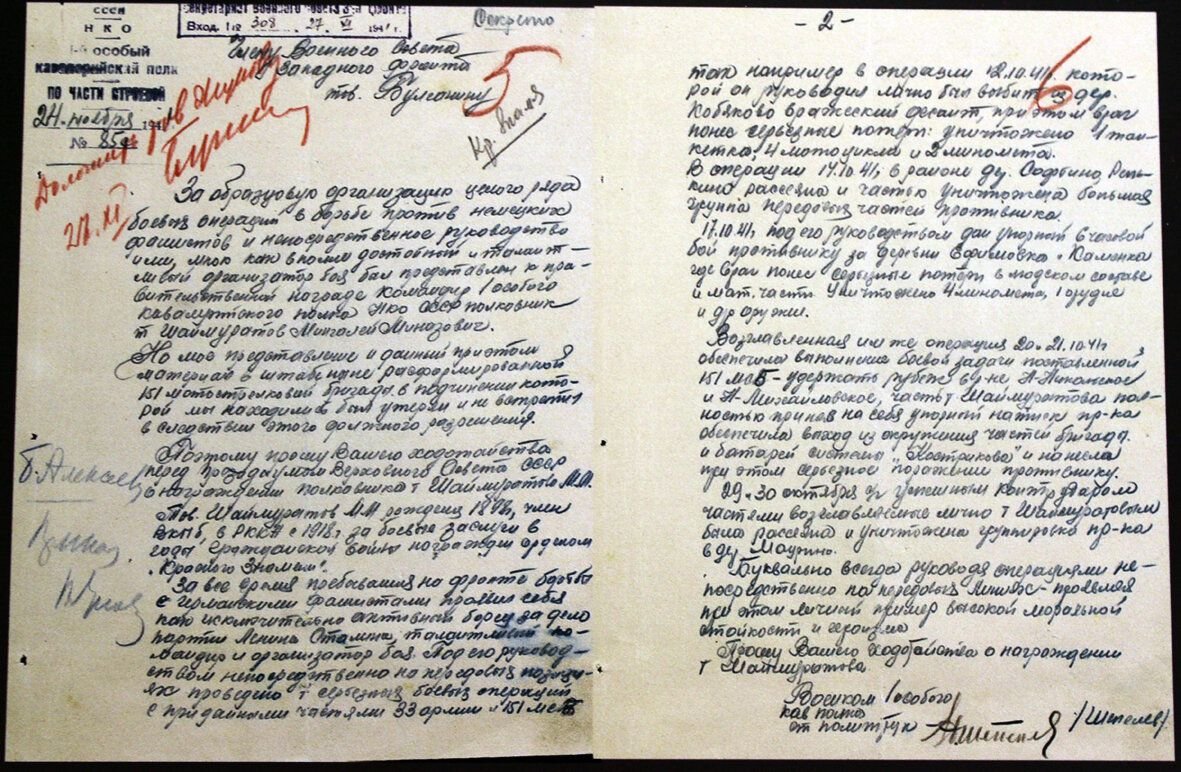 СССР
НКО
1-й особый
кавалерийский полк
ПО ЧАСТИ СТРОЕВОЙ
24 ноября 1941
№ 85
Секретариат Военного Совета Зап. фронта
Вход. № 308 27. XI 1941 г.
Секретно
Члену Военного Совета
Западного фронта
тов. Булганину
5
Кр. знамя
27. XI
За образцовую организацию целого ряда
боевых операций в борьбе против немецких
фашистов и непосредственное руководство
ими, мною как вполне достойный и талант-
ливый организатор боя был представлен к пра-
вительственной награде командир 1 особого
кавалерийского полка НКО СССР полковник
т Шаймуратов Мингалей Миназович.
Но мое представление и данный при этом
материал в штабе ныне расформированной
151 мотострелковой бригады в подчинении кото-
рой мы находимся был утерян и не встретил
в следствии этого должного разрешения.
Поэтому прошу Вашего ходотайства
перед Президиумом Верховного Совета СССР
о награждении полковника т Шаймуратова М.М.
Тов. Шаймуратов М.М рождения 1899г, член
ВКПб, в РККА с 1918г, за боевые заслуги в
годы Гражданской войны награжден орденом
"Красного Знамени".
За все время пребывания на фронте борьбы
с германскими фашистами проявил себя
как исключительно активный борец за дело
партии Ленина Сталина, талантливый ко-
мандир и организатор боя. Под его руковод-
ством непосредственно на передовых позици-
ях проведено 7 серьезных боевых операций
с приданными частями 33 армии и 151 мсб
б. Алексеев
Приказ
- 2 -
6
так например в операции 12.10.41г. кото-
рой он руководил лично был выбит из дер.
Кобяково вражеский десант, при этом враг
понес серьезные потери: уничтожено 1 тан-
кетка, 4 мотоцикла и 2 миномета.
В операции 14.10.41г, в районе д.
рассеяна и частью уничтожена большая
группа передовых частей противника.
17.10.41г под его руководством дан упорный 8 часовой
бой противнику за деревни Ефимовка и Каменка
где враг понес серьезные потери в людском составе
и мат. части. Уничтожено 4 миномета, 1 орудие
и др оружие.
Возглавленная им же операция 20-21.10.41г
обеспечила выполнение боевой задачи поставленной
151 мсб - удержать рубеж в р-не Н-Никольское
и Н-Михайловское, часть т Шаймуратова пол-
ностью приняв на себя упорный натиск пр-ка
обеспечила выход из окружения частей бригады
и батарей системы "Кострикова" и нанесла
при этом серьезное поражение противнику.
29-30 октября с/г успешным контрударом
частями возглавляемые лично т Шаймуратовым
была рассеяна и уничтожена группировка пр-ка
в д. Маурино.
Буквально всегда руководя операциями не-
посредственно на передовых линиях - проявляя
при этом личный пример высокой моральной
стойкости и героизма
Прошу Вашего ходотайства о награждении
т Шаймуратова.
Военком 1 особого
кав полка
ст политрук
/Шепелев/